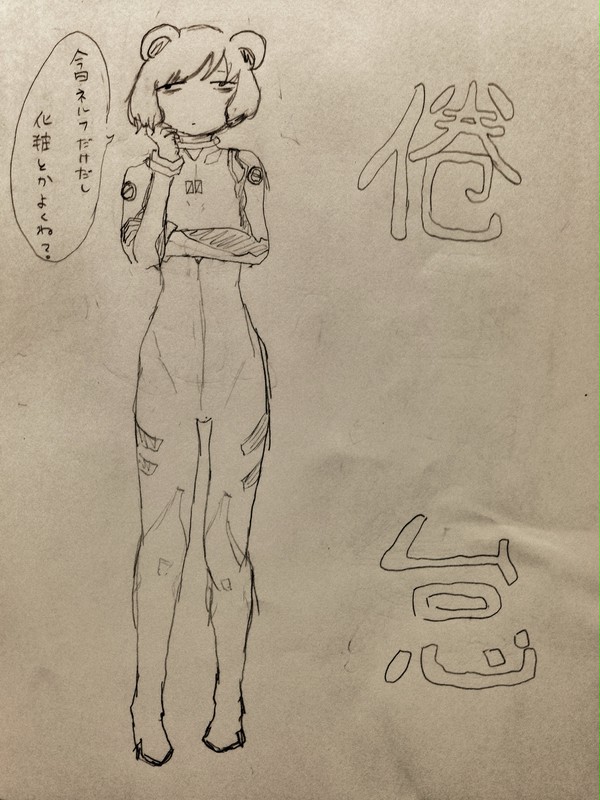 倦怠
今日ネルフだけだし
化粧とかよくね?